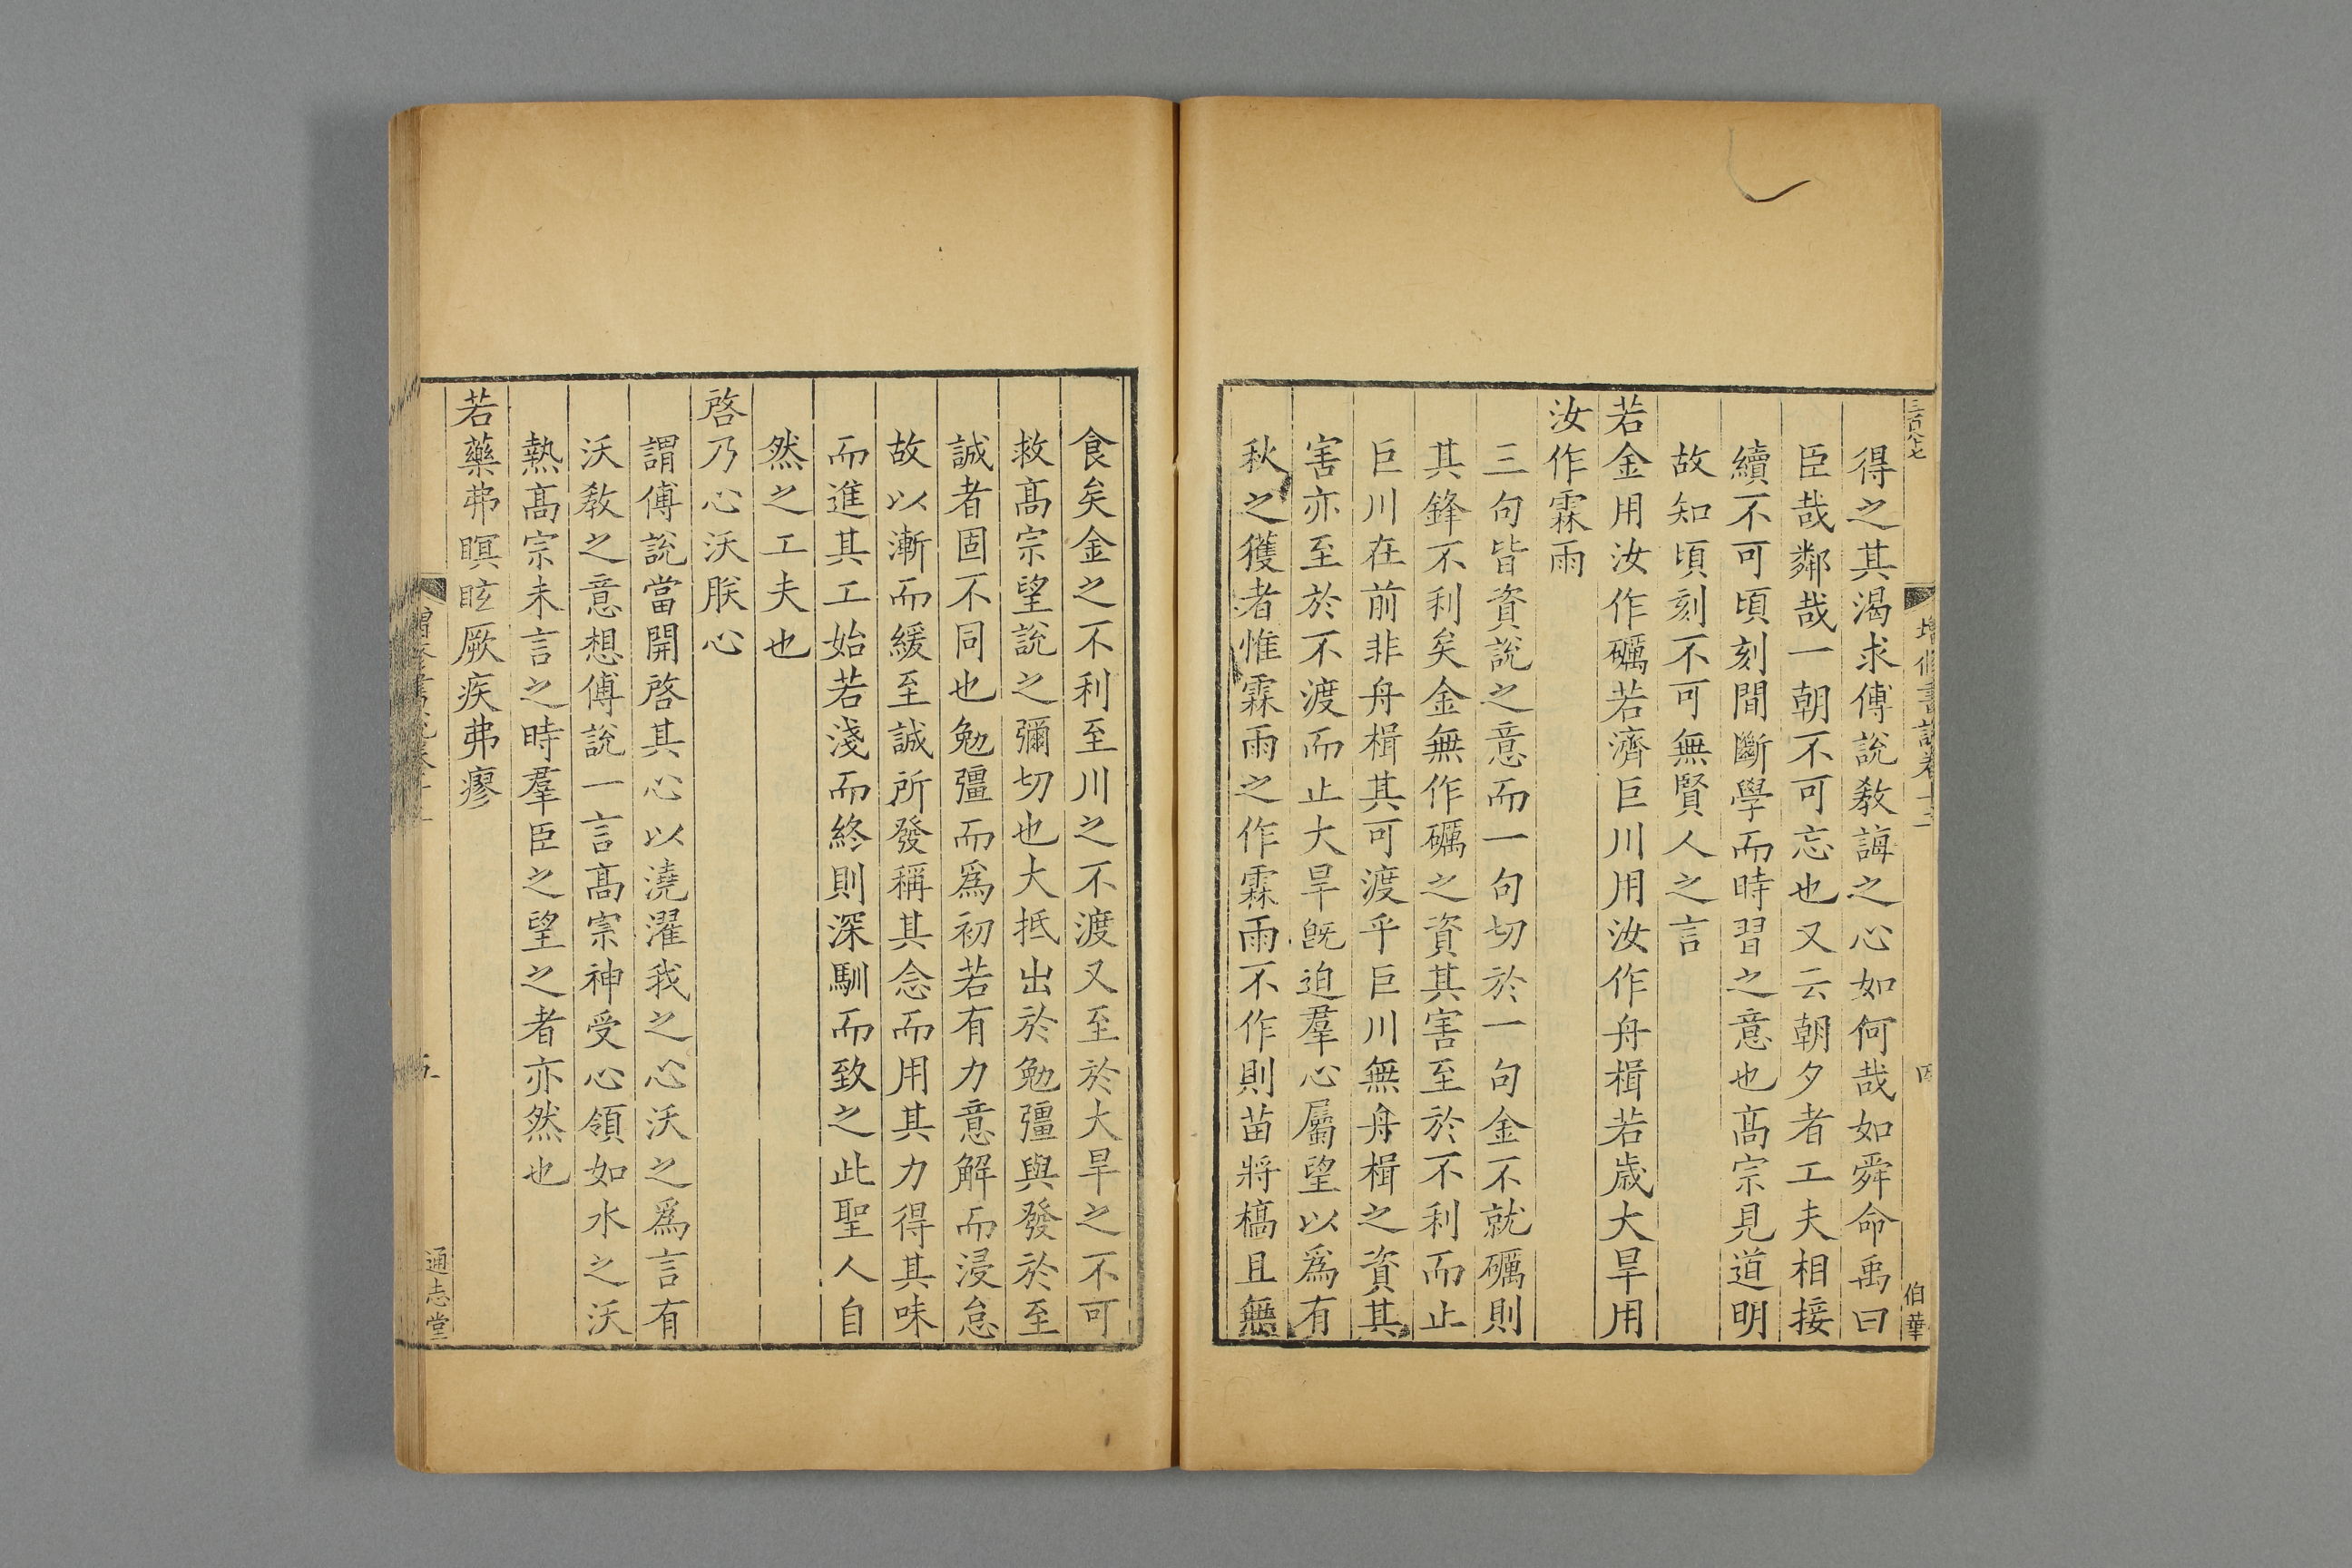 得之其渴求傅說敎誨之心如何哉如舜命禹曰
臣哉鄰哉一朝不可忘也又云朝夕者工夫相接
續不可頃刻間斷學而時習之意也髙宗見道明
故知頃刻不可無賢人之言
若金用汝作礪若濟巨川用汝作舟楫若歲大旱用
汝作霖雨
三句皆資說之意而一句切於一句金不就礪則
其鋒不利矣金無作礪之資其害至於不利而止
巨川在前非舟楫其可渡乎巨川無舟楫之資其
害亦至於不渡而止大旱旣迫羣心屬望以爲有
秋之獲者惟霖雨之作霖雨不作則苗將槁且無
伯華
食矣金之不利至川之不渡又至於大旱之不可
救髙宗望說之彌切也大抵出於勉彊與發於至
誠者固不同也勉彊而爲初若有力意解而浸怠
故以漸而緩至誠所發稱其念而用其力得其味
而進其工始若淺而終則深馴而致之此聖人自
然之工夫也
啓乃心沃朕心
謂傅說當開啓其心以澆濯我之心沃之爲言有
沃敎之意想傅說一言髙宗神受心領如水之沃
熱髙宗未言之時羣臣之望之者亦然也
若藥弗瞑眩厥疾弗瘳
五
通志堂